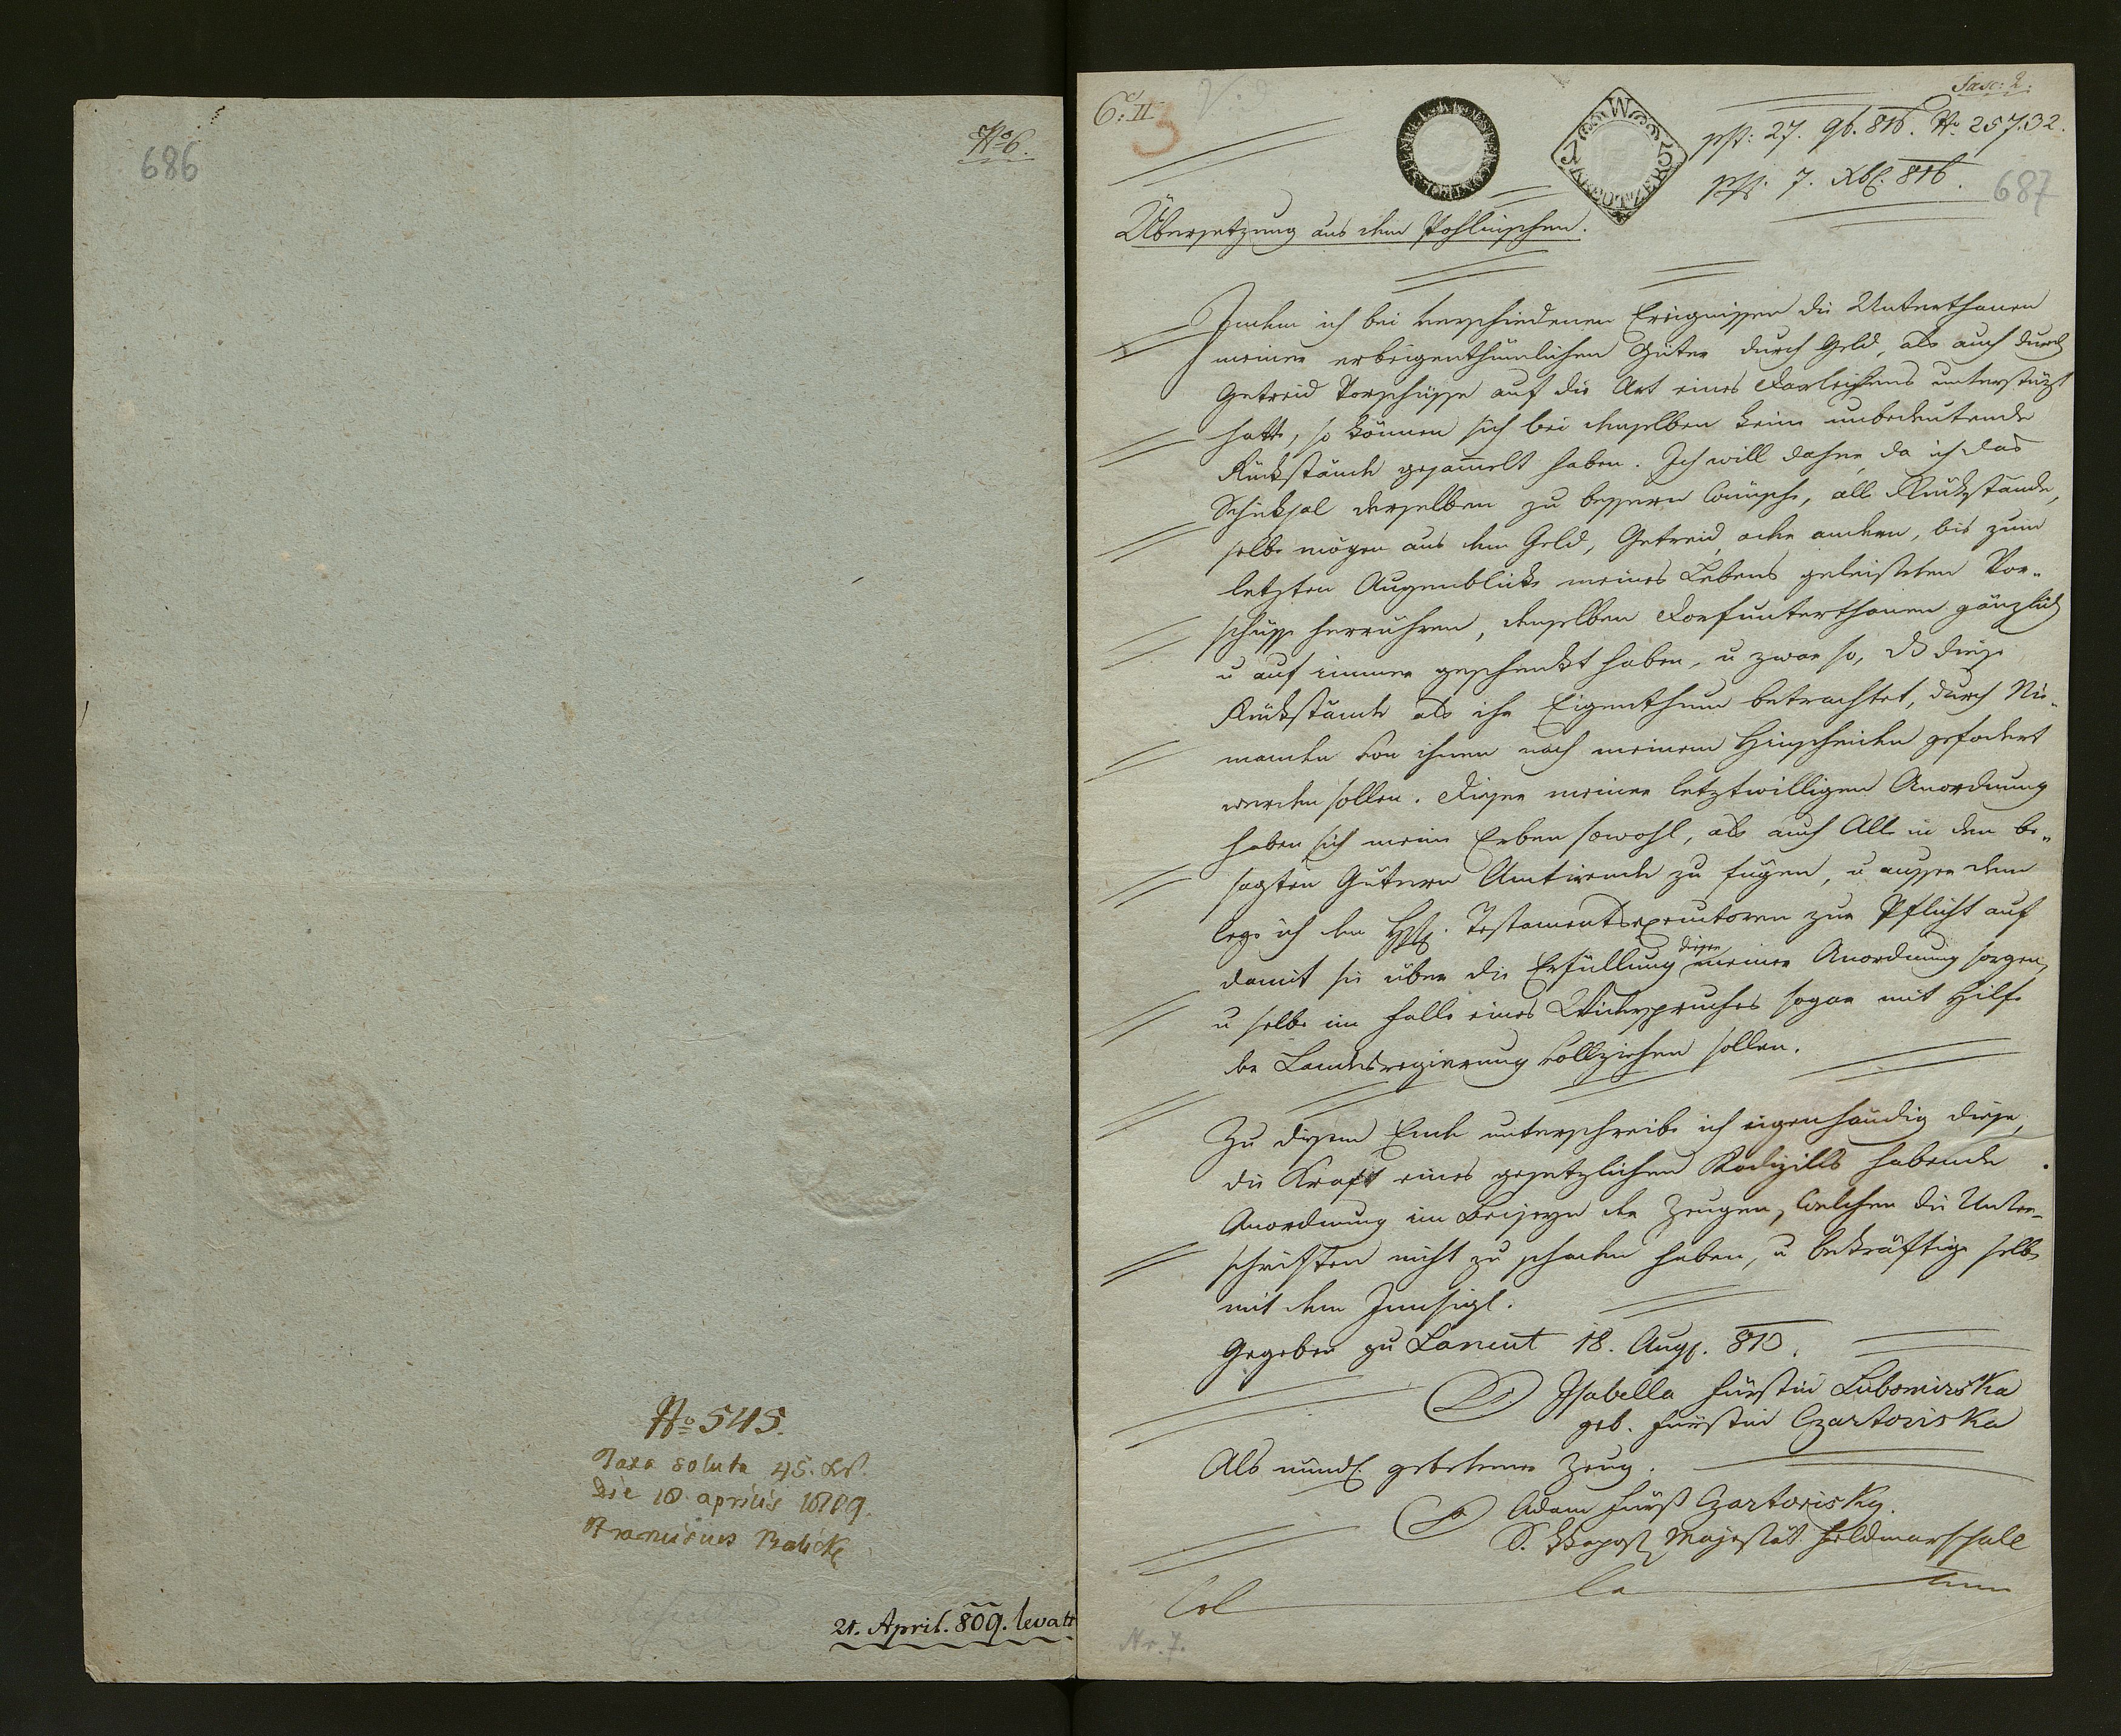 686
No 6.
No 545.
Taxa soluta 45. xr.
Die 18 aprilis 1809.
Franciscus
21. April. 809. levatt
6. II
3
Fasc: 2.
27. 9b. 816. No. 25732.
7. Xb. 816.
687
Übersetzung aus dem Pohlnischen.
Indem ich bei verschiedenen Ereignissen die Unterthanen
meiner erbeigenthümlichen Güter durch Geld, als auch durch
Getreid Vorschüsse auf die Art eines Darleihens unterstüzt
hatte, so können sich bei denselben keine unbedeutende
Rükstände gesam̄elt haben. Ich will daher, da ich das
Schiksal derselben zu bessern wünsche, alle Rückstände,
selbe mögen aus dem Geld, Getreid, oder andern, bis zum
letzten Augenblicke meines Lebens geleisteten Vor-
schüsse herrühren, denselben Dorfunterthanen gänzlich
u auf immer geschenkt haben, u zwar so, dß diese
Rükstände als ihr Eigenthum betrachtet, durch Nie-
manden von ihnen nach meinem Hinscheiden gefodert
werden sollen. Dieser meiner letztwilligen Anordnung
haben sich meine Erben sowohl, als auch Alle in den be-
sagten Gütern Amtirende zu fügen, u ausser dem
lege ich den Testamentsexecutoren zur Pflicht auf
damit sie über die Erfüllung dieser meiner Anordnung sorgen,
u selbe im Falle eines Widerspruches sogar mit Hilfe
der Landesregierung vollziehen sollen.
Zu diesem Ende unterschreibe ich eigenhändig diese,
die Kraft eines gesetzlichen Kodizills habende
Anordnung im Beiseyn der Zeugen, welchen die Unter-
schriften nicht zu schaden haben, u bekräftige selbe
mit dem Innsigl.
Gegeben zu Lancut 18. Aug. 810.
Isabella Fürstin Lubomirska
geb. Fürstin Czartoriska
Als mündl. gebetener Zeug.
Adam Fürst Czartorisky.
S. Majestät Feldmarschall
Col la tum
Nr. 7.